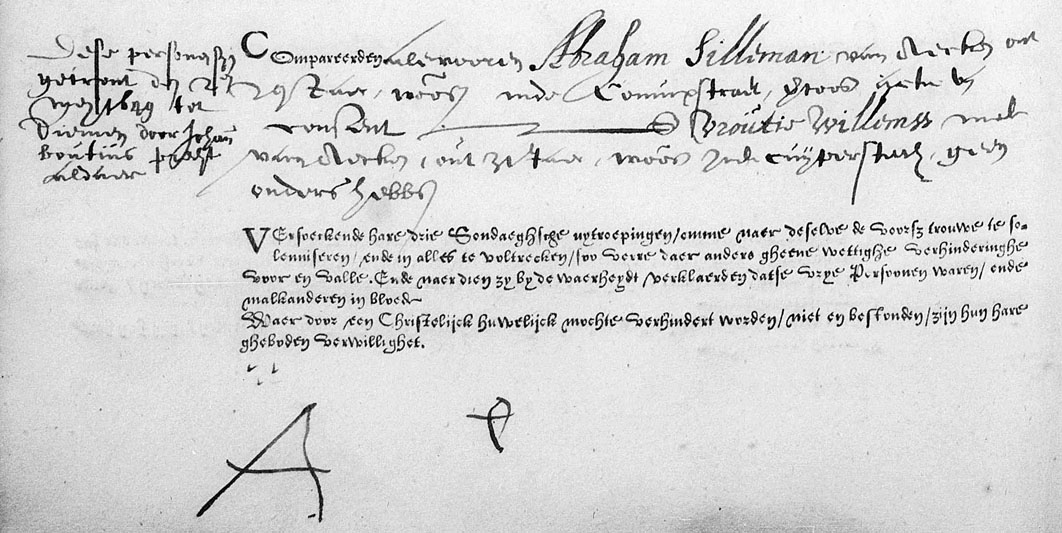 Dese personen zijn
getrout den
1649 tot
Diemen door Johan
Boutius
aldaer
Compareerden als vooren Abraham Silleman van Aecken out
Jaer, woo~ inde Conincxstraet,
consent Vroutie Willemss
van Aecken, out Jaer, woo~ inde Cuyperstech, geen
ouders hebb~
VErsoeckende hare drie Sondaeghsche uytroepingen/omme naer deselve de voorsz trouwe te so-
lenniseren/ende in alles te voltrecken/soo verre daer anders gheene wettighe verhinderinghe
voor en valle. Ende naer dien zy by de waerheydt verklaerden datse vrye Persoonen waren/ende
malkanderen in bloede
Waer door een Christelijck huwelijck mochte verhindert worden/niet en bestonden/zijn hun hare
gheboden verwillighet.
A